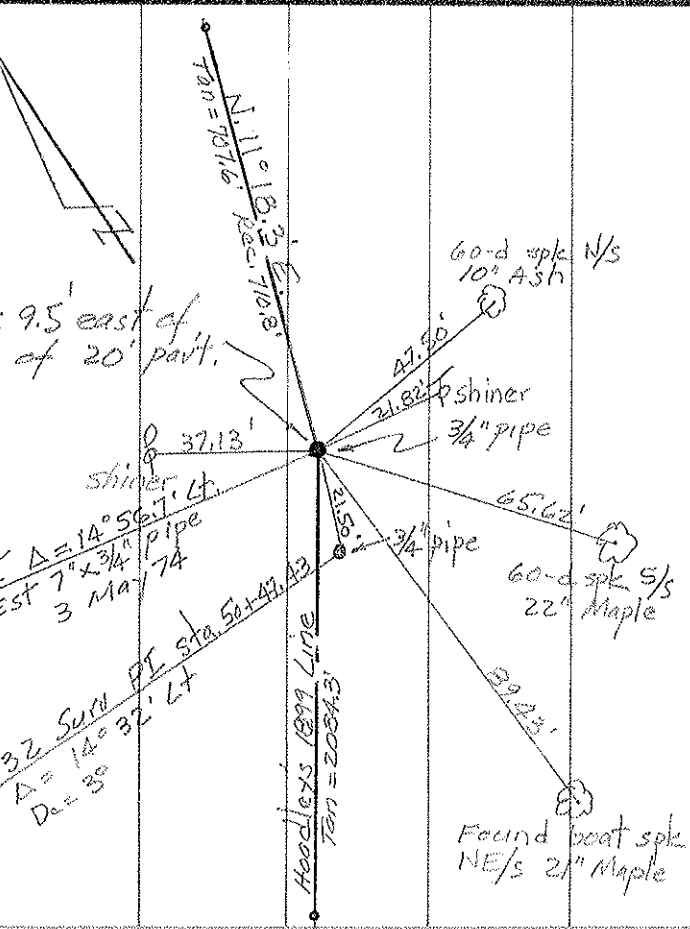 N. 11° 18.3' E.
Tan = 707.6' Rec. 710.8'
N
60-d spk N/s
10" Ash
9.5' east of
of 20' pav't.
47.50'
21.82'
shiner
3/4" pipe
37.13'
shiner
Δ = 14° 56.7' Lt.
Est 7" x 3/4" pipe
3 May 74
21.50'
3/4" pipe
65.62'
60-d spk S/s
22" Maple
32 Surv PI sta. 50+47.43
Δ = 14° 32' Lt
Dc = 3°
Hoadley's 1899 Line
Tan = 2084.3'
89.43'
Found boat spk
NE/s 21" Maple